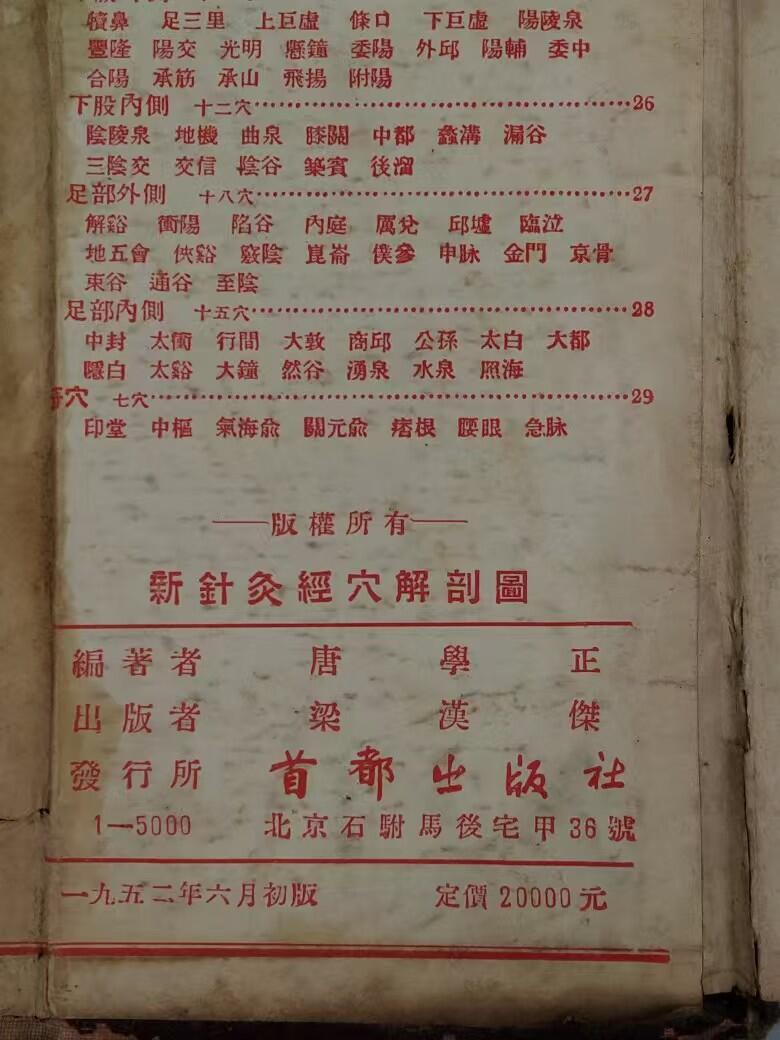 犢鼻 足三里 上巨虛 條口 下巨虛 陽陵泉
豐隆 陽交 光明 懸鐘 委陽 外邱 陽輔 委中
合陽 承筋 承山 飛揚 附陽
下股內側 十二穴 26
陰陵泉 地機 曲泉 膝關 中都 蠡溝 漏谷
三陰交 交信 陰谷 築賓 後溜
足部外側 十八穴 27
解谿 衝陽 陷谷 內庭 厲兌 邱墟 臨泣
地五會 俠谿 竅陰 崑崙 僕參 申脉 金門 京骨
束谷 通谷 至陰
足部內側 十五穴 28
中封 太衝 行間 大敦 商邱 公孫 太白 大都
隱白 太谿 大鐘 然谷 湧泉 水泉 照海
奇穴 七穴 29
印堂 中樞 氣海兪 關元兪 痞根 腰眼 急脉
——版權所有——
新針灸經穴解剖圖
編著者 唐學正
出版者 梁漢傑
發行所 首都出版社
1—5000 北京石駙馬後宅甲36號
一九五二年六月初版 定價20000元